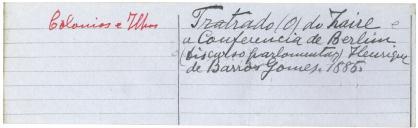 Colonias e Ilhas
Tratrado (O) do Zaire e
a Conferencia de Berlim
(discurso parlamentar) Henrique
de Barros Gomes. 1885.